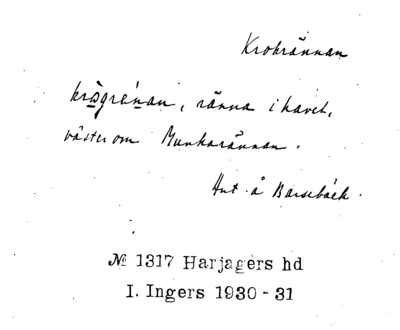 Krokrännan
krògrénan, ränna i havet,
väster om Munkarännan.
å Barsebäck.
№ 1317 Harjagers hd
I. Ingers 1930-31